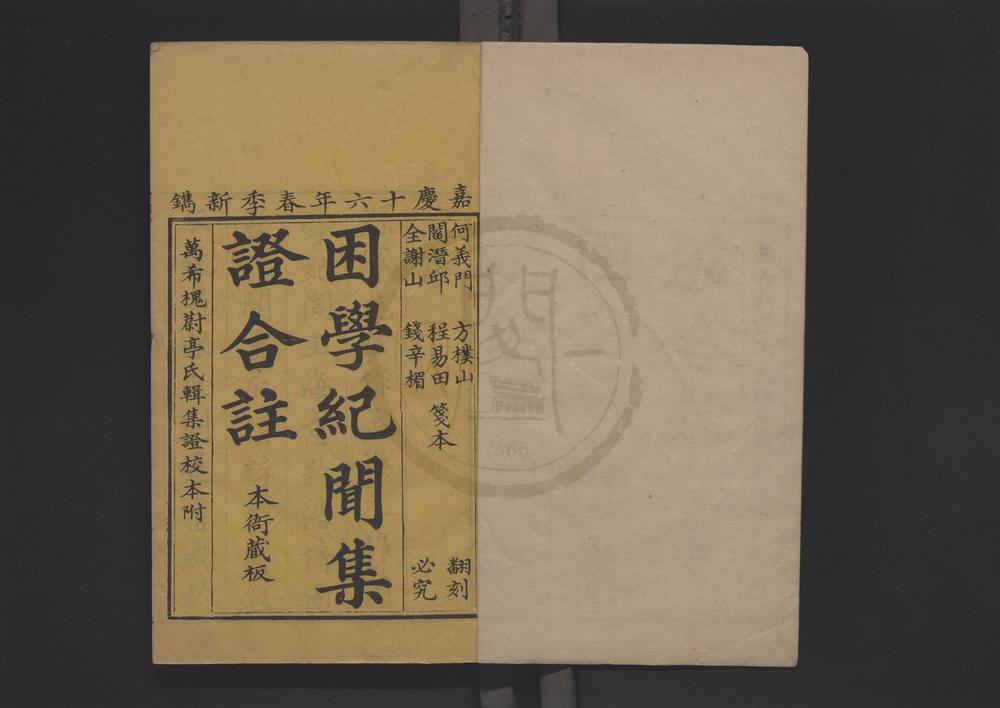 嘉慶十六年春季新鐫
何義門 方樸山
閻潛邱 程易田 箋本
全謝山 錢辛楣
翻刻
必究
困學紀聞集
證合註
本衙蔵板
萬希槐蔚亭氏輯集證校本附